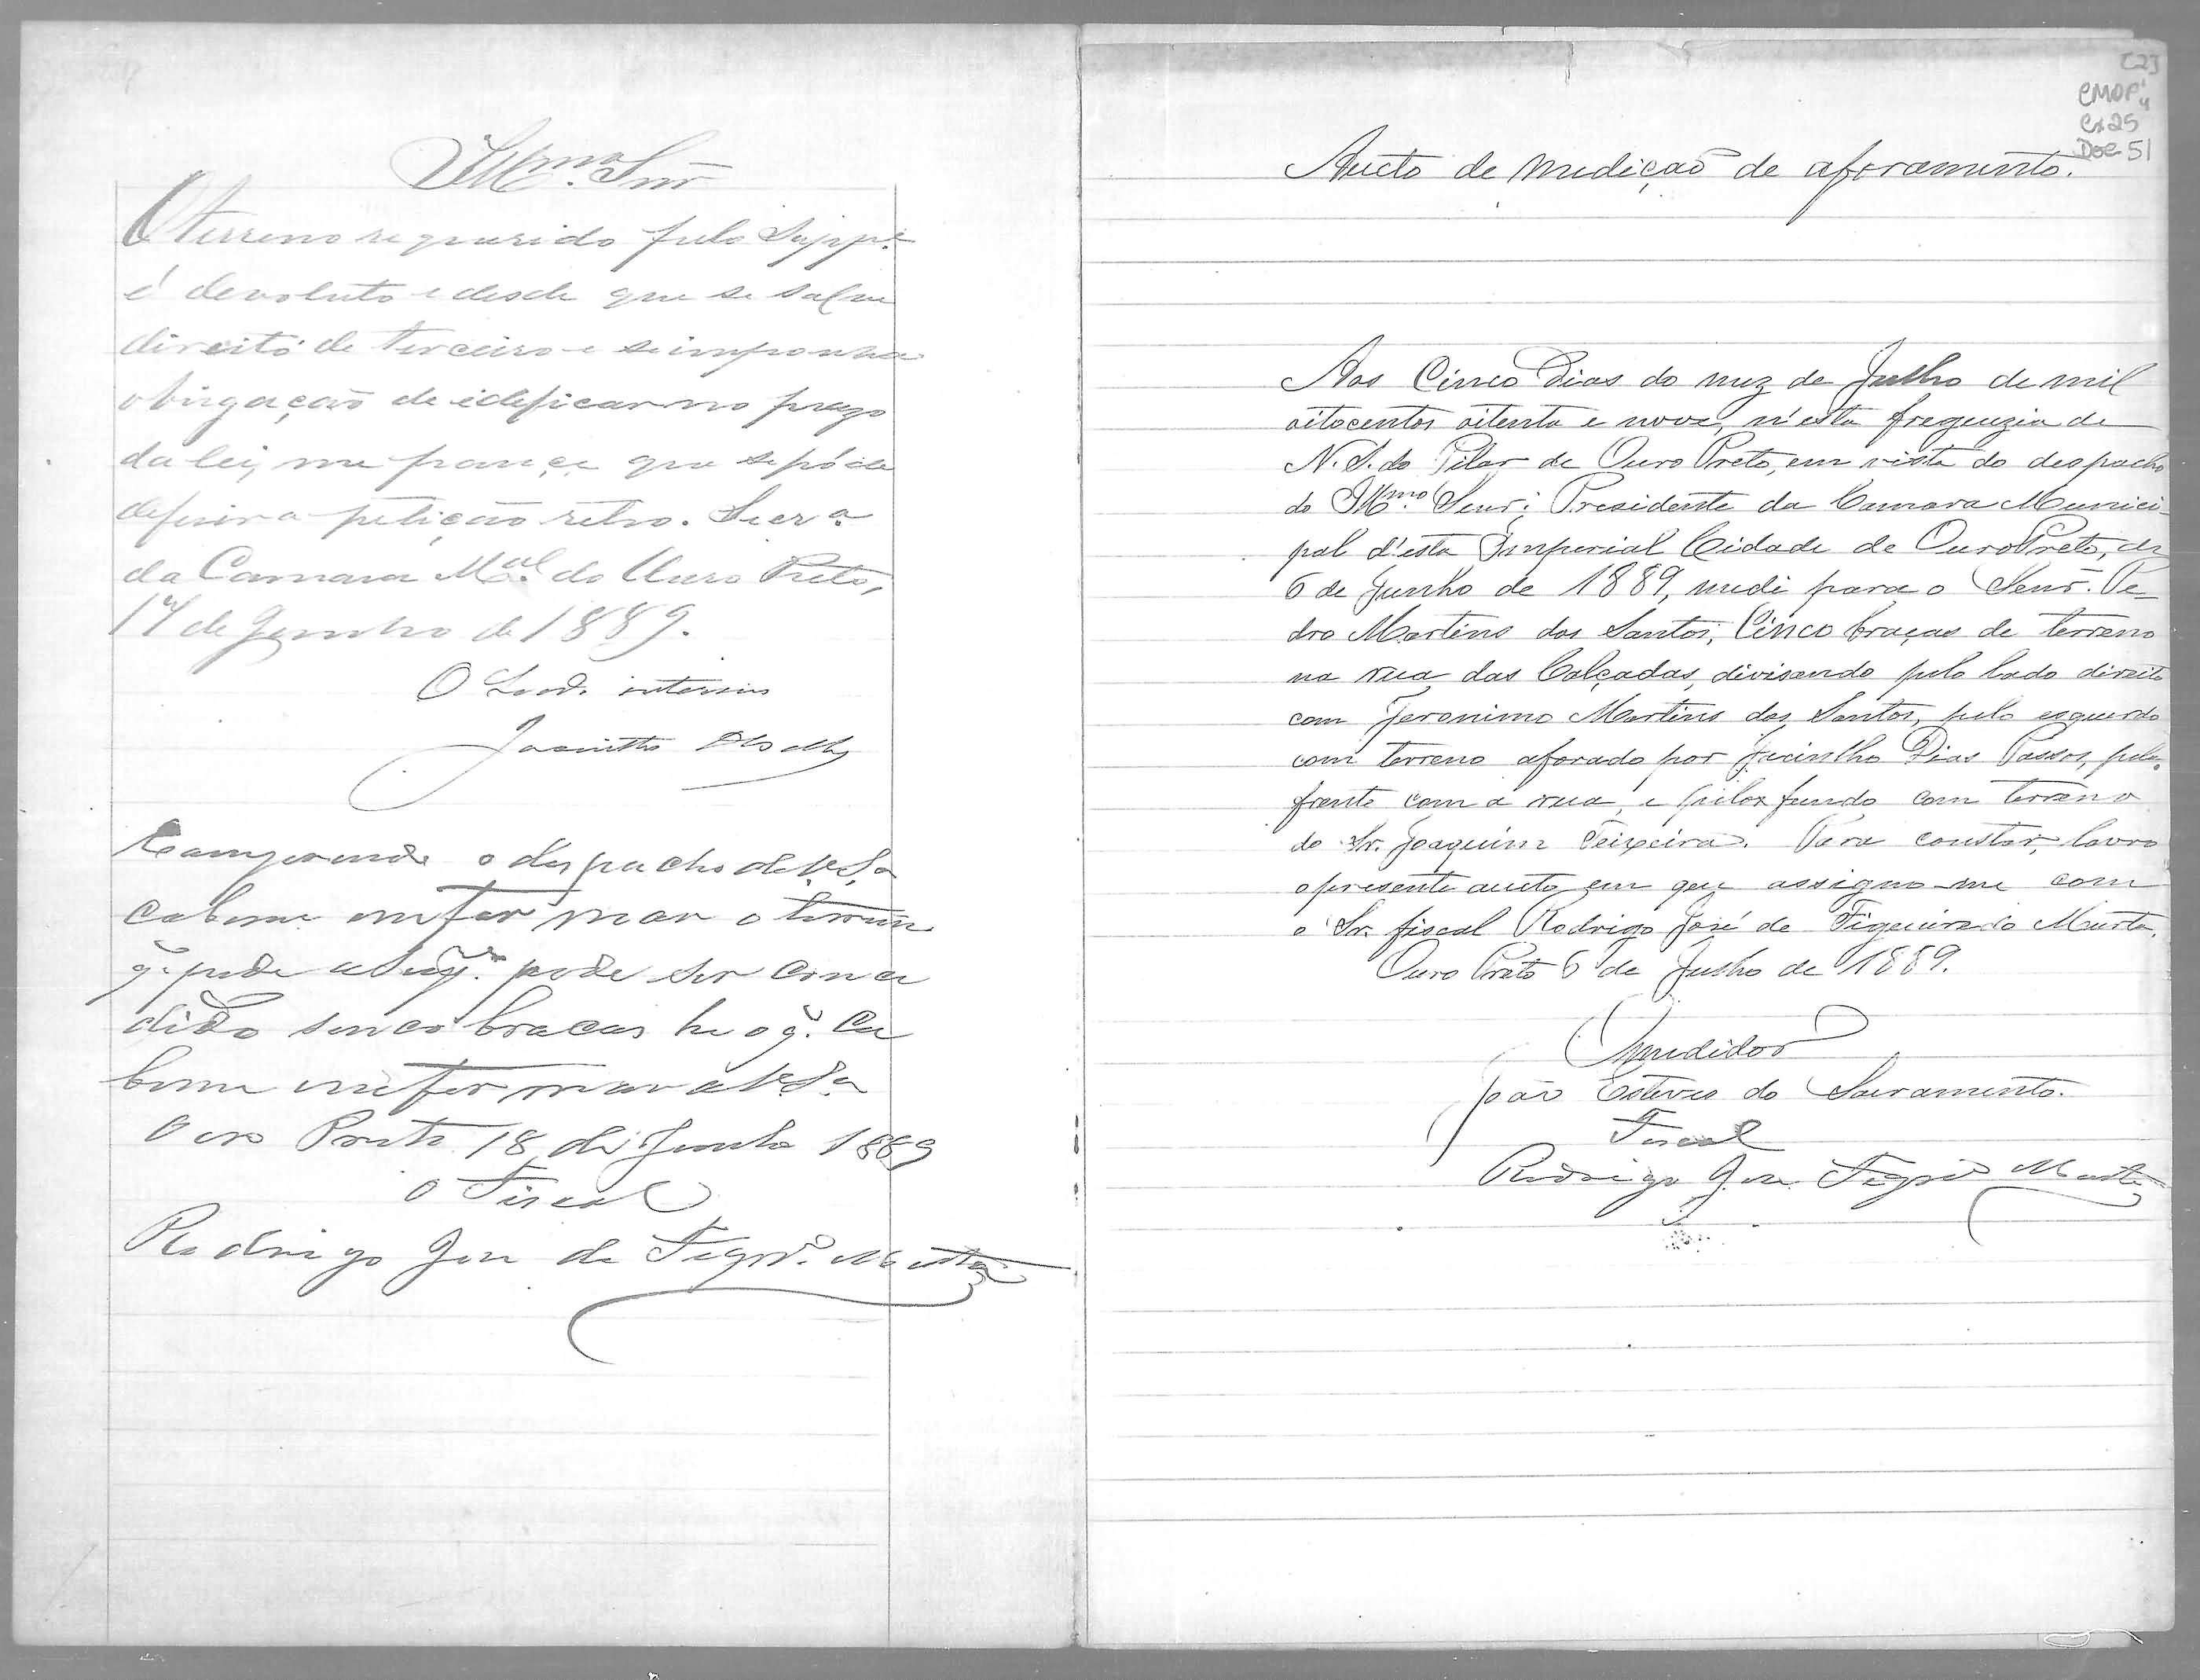 Illmo. Snr
O terreno requerido pelo Suppe.
é devoluto e desde que se salve
direito de terceiro e se imponha
obrigação de edeficar no prazo
da lei, me parece que se póde
deferir a petição retro. Secra.
da Camara Mal. do Ouro Preto,
17 de Junho de 1889.
O interino
Jacintho
Comprendo o despacho de V.Sa
cabeme emformar o terreno
q. pede o Supe. pode ser conce
dido sinco bracas he o q. ca
beme emformar a V.Sa
Ouro Preto 18 de Junho 1889
O Fiscal
Rodrigo Jose de Figrdo. Murta
[2]
CMOP
Cx25
Doc 51
Aucto de medição de aforamento.
Aos Cinco Dias do mez de Julho de mil
oitocentos oitenta e nove, n'esta freguezia de
N. S. do Pilar de Ouro Preto, em vista do despacho
do Illmo. Senr. Presidente da Camara Munici-
pal d'esta Imperial Cidade de Ouro Preto, de
6 de Junho de 1889, medi para o Senr. Pe-
dro Martins dos Santos, Cinco braças de terreno
na rua das Calçadas, divisando pelo lado direito
com Jeronimo Martins dos Santos, pelo esquerdo
com terreno aforado por Jacintho Dias Passos, pela
frente com a rua, e pelos fundo com terreno
do Sr. Joaquim Teixeira. Para constar, lavro
o presente aucto em que assigno-me com
o Sr. fiscal Rodrigo José de Figueiredo Murta.
Ouro Preto 6 de Julho de 1889.
O medidor
João Esteves do Sacramento.
Fiscal
Rodrigo Jose Figrdo Murta